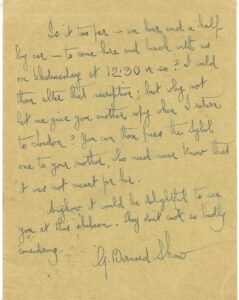 Is it too far — an hour and a half
by car — to come here and lunch with us
on Wednesday at 12:30 or so? I could
then alter that inscription; but why not
let me give you another copy when I return
to London? You can then pass the
one to your mother, who need never know that
it was not meant for her.
Anyhow it would be delightful to see
you at this They don't cook so badly
considering.
G. Bernard Shaw.